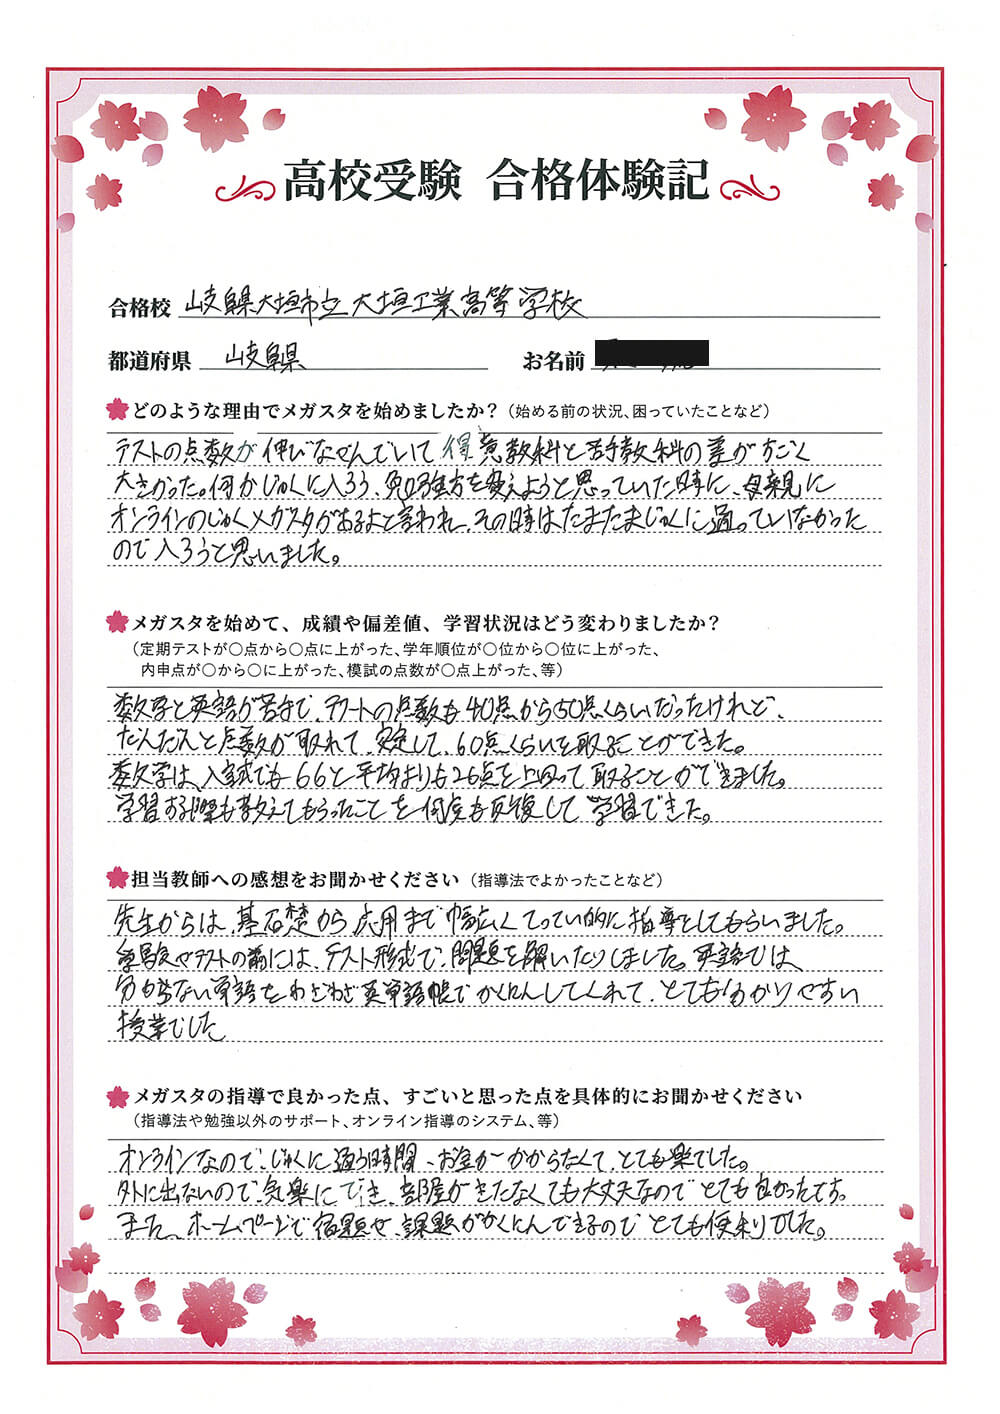 高校受験 合格体験記
合格校 岐阜県大垣市立 大垣工業高等学校
都道府県 岐阜県 お名前
どのような理由でメガスタを始めましたか？（始める前の状況、困っていたことなど）
テストの点数が伸びなやんでいて 得意教科と苦手教科の差がすごく
大きかった。何かじゅくに入ろう、勉強方を変えようと思っていた時に、母親に
オンラインのじゅくメガスタがあるよと言われ、その時はたまたまじゅくに通っていなかった
ので入ろうと思いました。
メガスタを始めて、成績や偏差値、学習状況はどう変わりましたか？
（定期テストが〇点から〇点に上がった、学年順位が〇位から〇位に上がった、
内申点が〇から〇に上がった、模試の点数が〇点上がった、等）
数学と英語が苦手で、テストの点数も40点から50点くらいだったけれど、
だんだんと点数が取れて、安定して、60点くらいを取ることができた。
数学は、入試でも66と平均よりも26点を上回って取ることができました。
学習する際も教えてもらったことを何度も反復して学習できた。
担当教師への感想をお聞かせください（指導法でよかったことなど）
先生からは、基石楚から応用まで幅広くてってい的に指導をしてもらいました。
受験やテストの前には、テスト形式で、問題を解いたりしました。英語では、
分からない単語をわざわざ英単語帳でかくにんしてくれて、とても分かりやすい
授業でした
メガスタの指導で良かった点、すごいと思った点を具体的にお聞かせください
（指導法や勉強以外のサポート、オンライン指導のシステム、等）
オンラインなので、じゅくに通う時間、お金がかからなくて、とても楽でした。
外に出ないので、気楽にでき、部屋がきたなくても大丈夫なのでとても良かったです。
また、ホームページで宿題や、課題がかくにんできるのでとても便利でした。